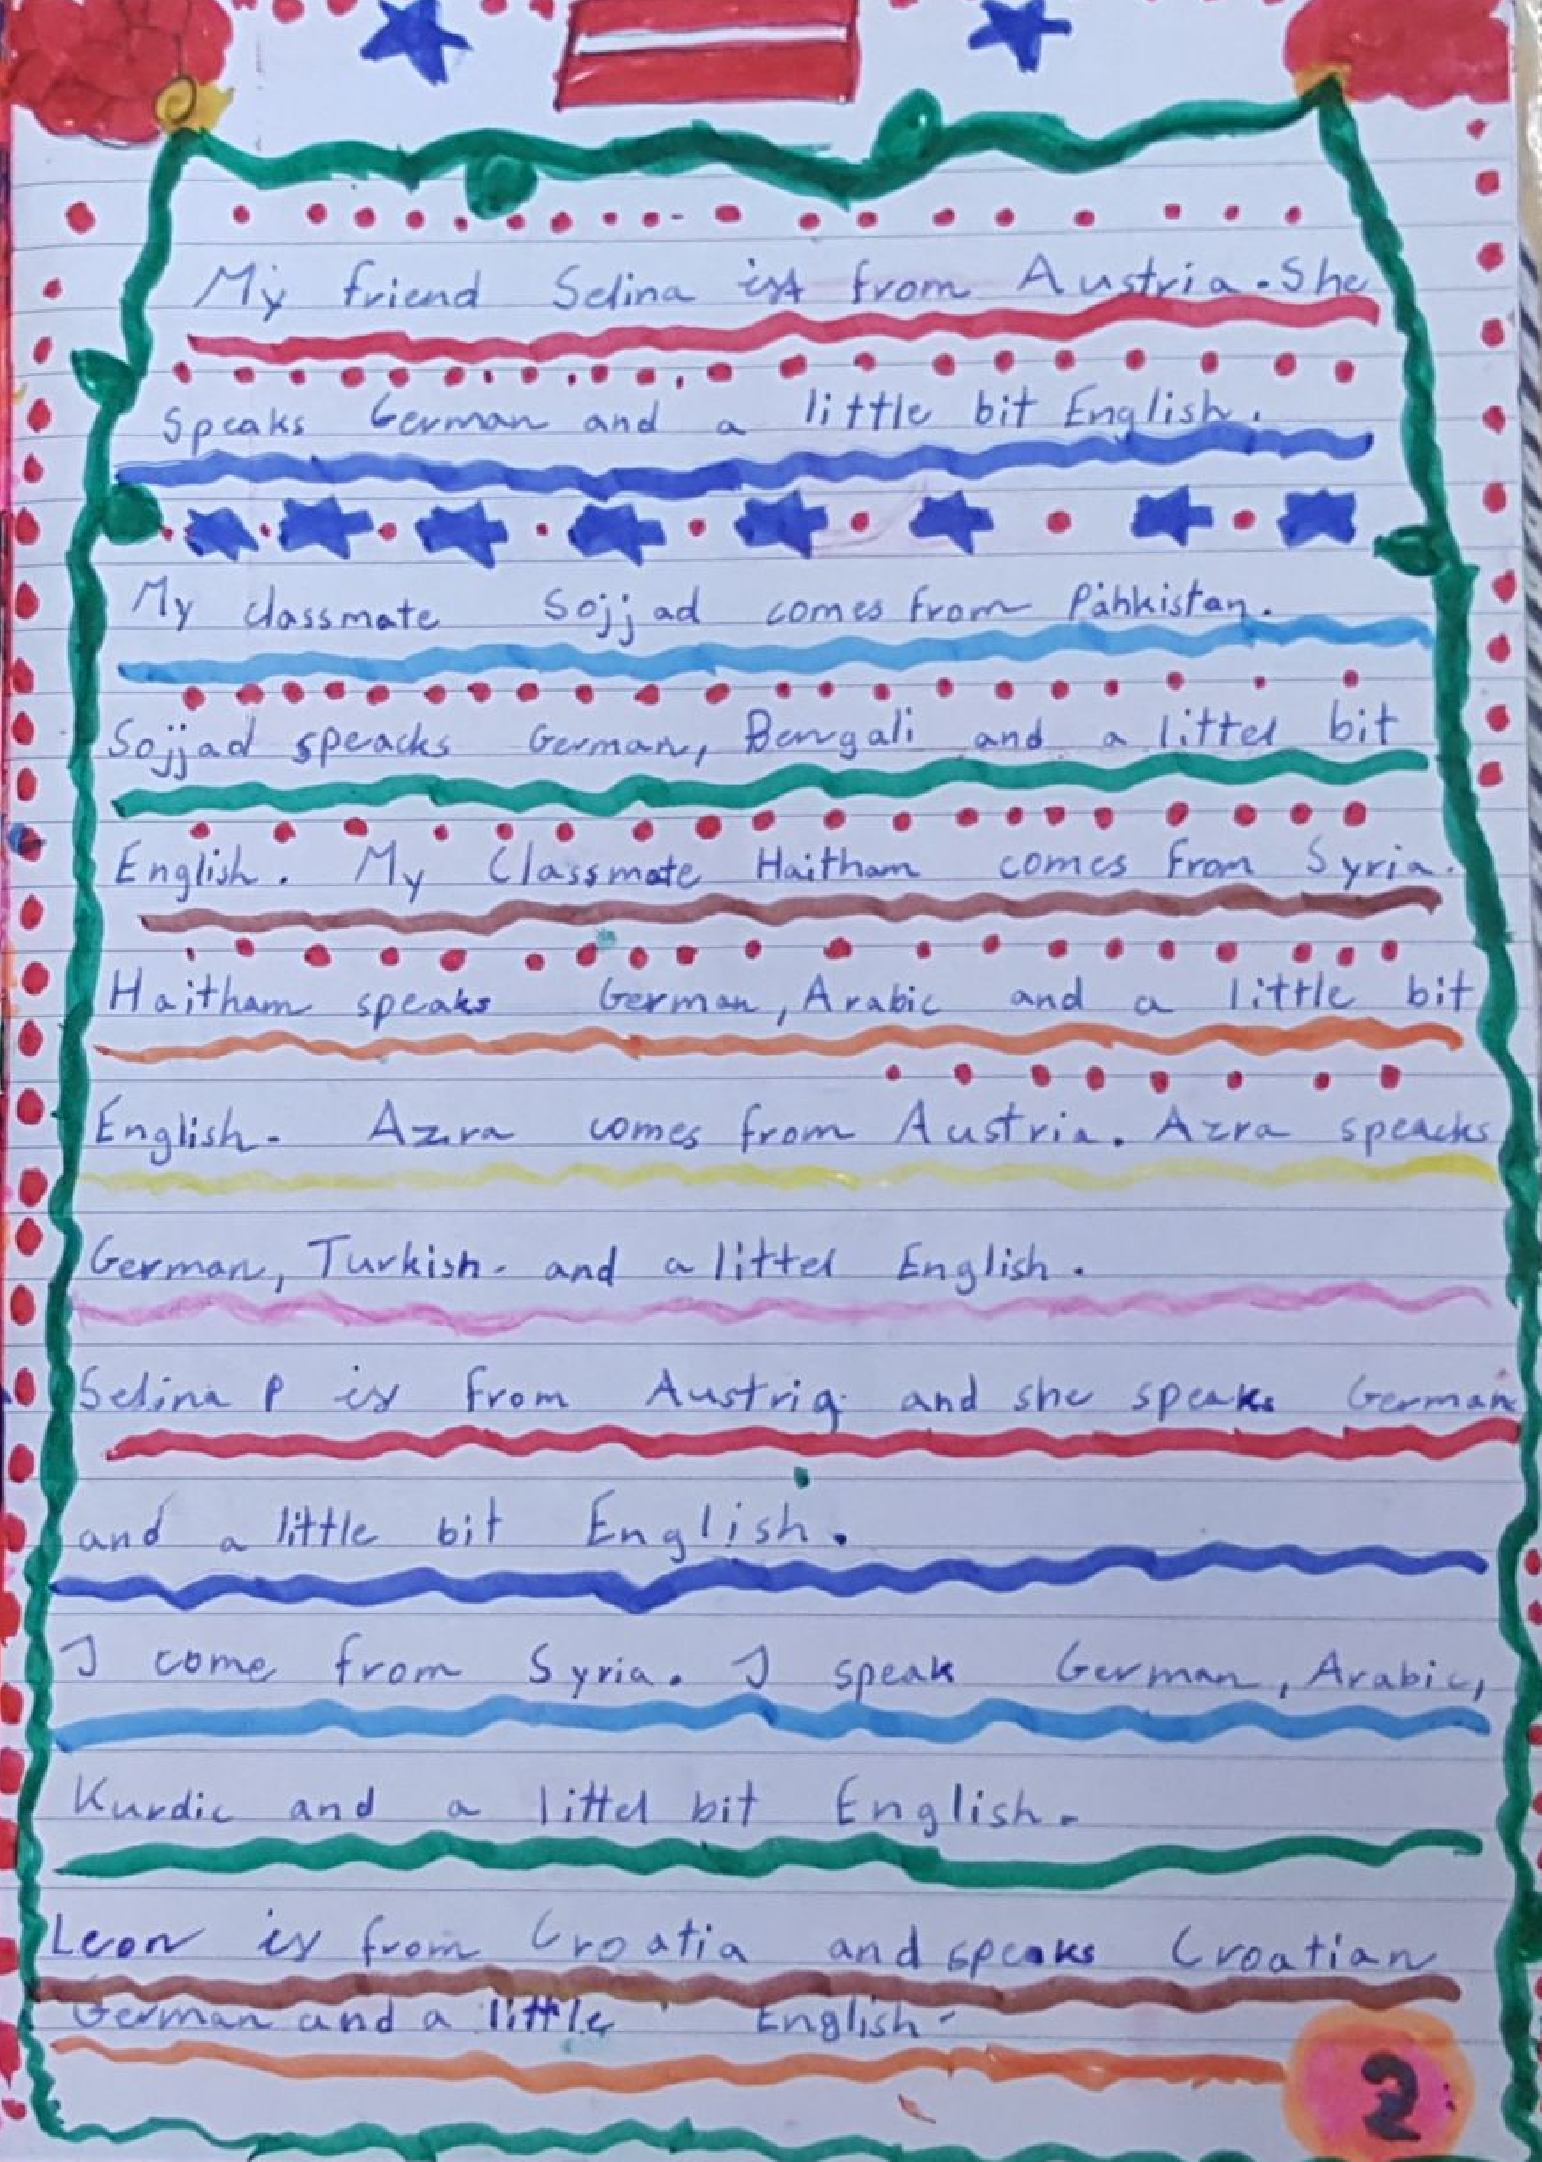 My friend Selina ist from Austria. She
speaks German and a little bit English.
My classmate Sojjad comes from Pahkistan.
Sojjad speacks German, Bengali and a littel bit
English. My Classmate Haitham comes from Syria.
Haitham speaks German, Arabic and a little bit
English. Azra comes from Austria. Azra speacks
German, Turkish. and a littel English.
Selina P is from Austria. and she speaks German
and a little bit English.
I come from Syria. I speak German, Arabic,
Kurdic and a littel bit English.
Leon is from Croatia and speaks Croatian
German and a little English.
2